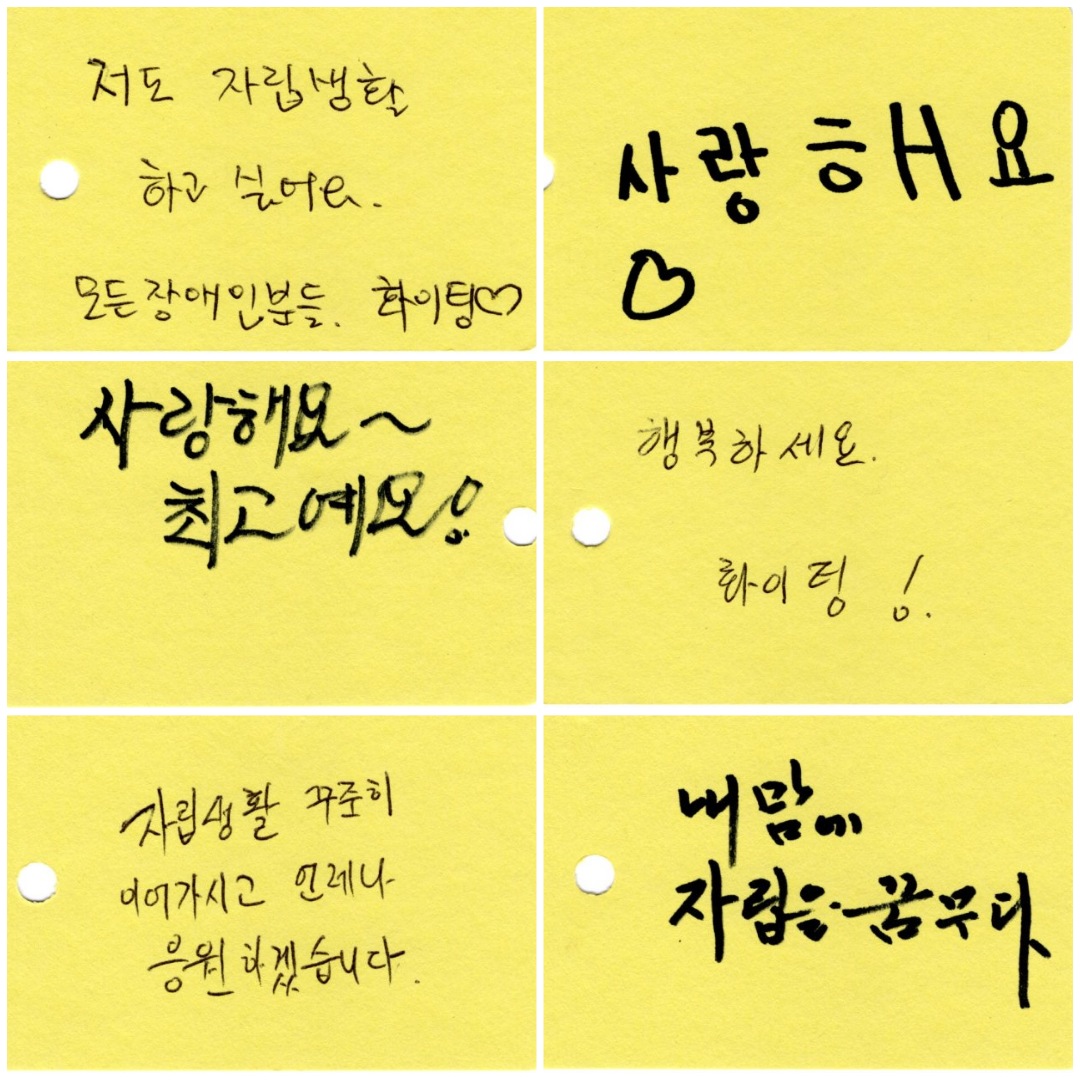 저도 자립생활
하고 싶어요.
모든장애인분들. 화이팅♡
사랑해요
♡
사랑해요~
최고예요!
행복하세요.
화이팅!
자립생활 꾸준히
이어가시고 언제나
응원하겠습니다.
내 맘에
자립을 꿈꾸다